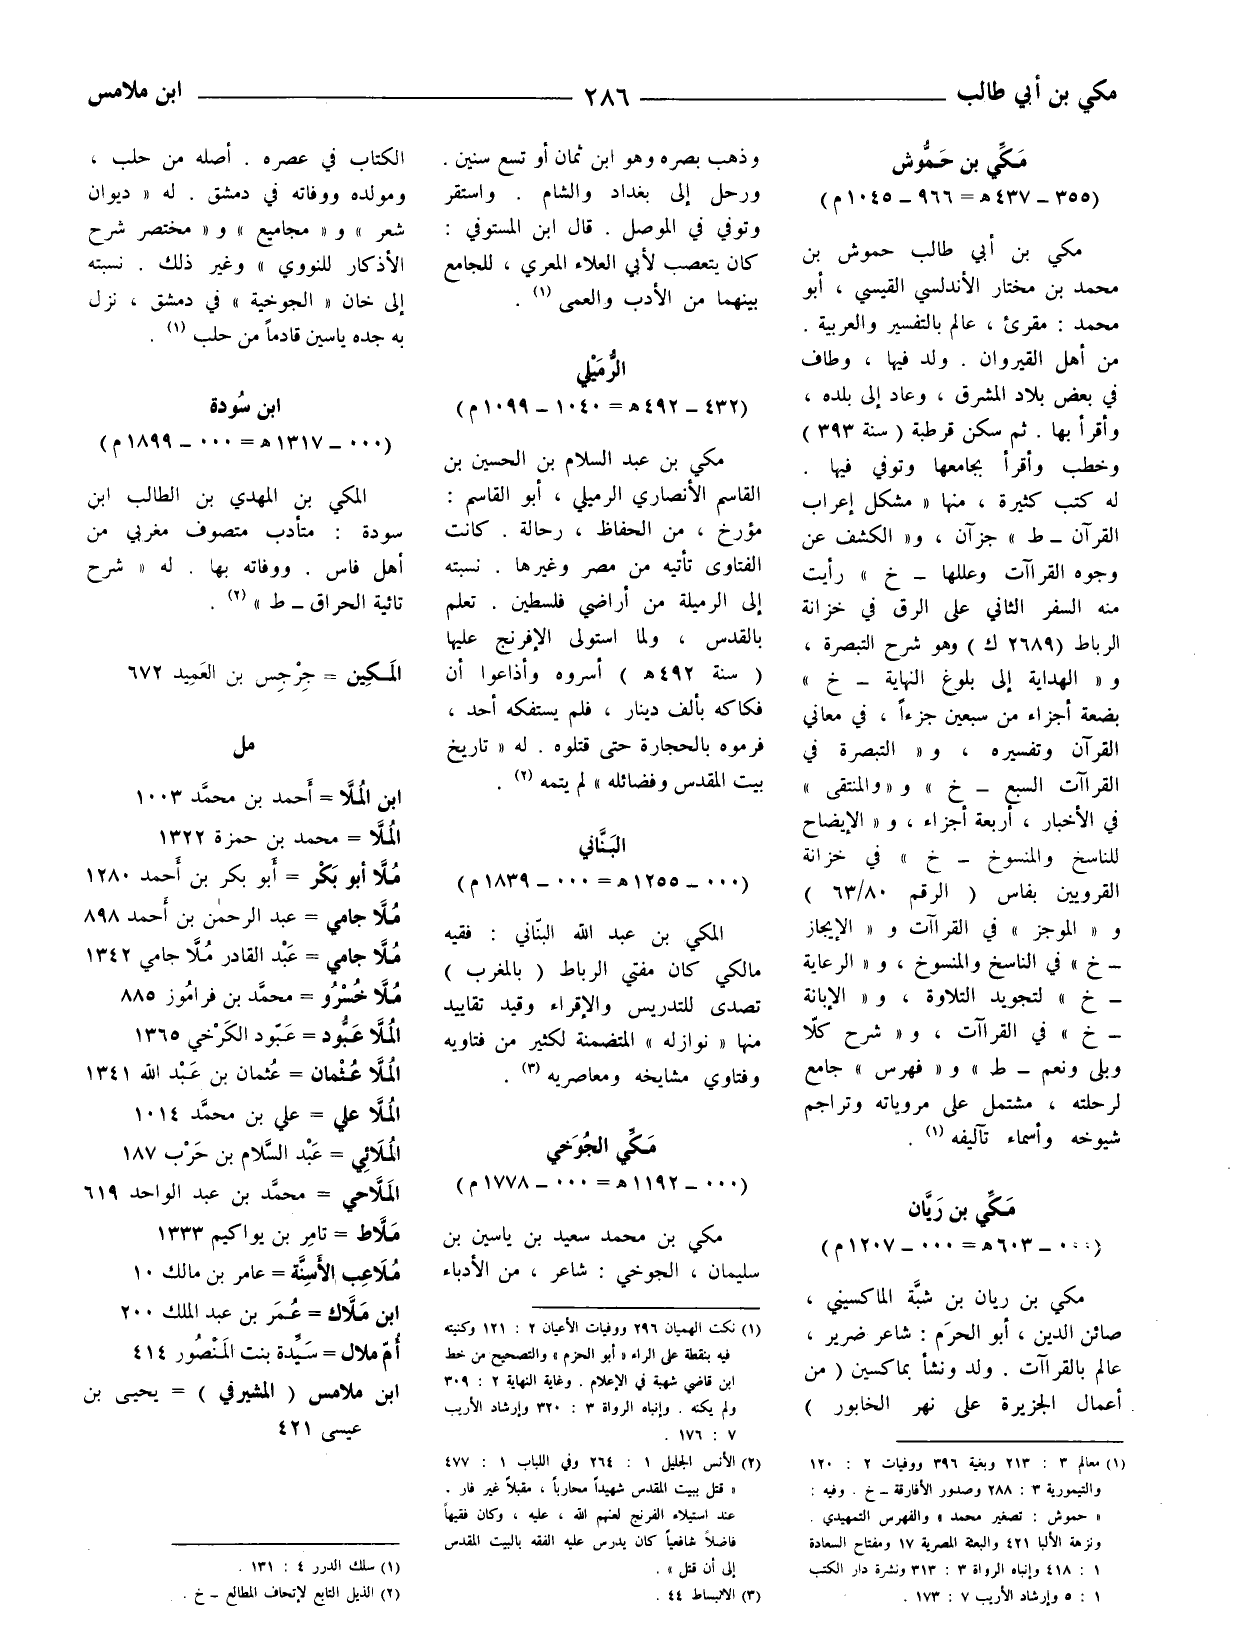 مكي بن أبي طالب ٢٨٦ ابن ملامس
مَكِّي بن حَمُّوش
(٣٥٥ ــ ٤٣٧ ه = ٩٦٦ ــ ١٠٤٥ م)
مكي بن أبي طالب حموش بن
محمد بن مختار الأندلسي القيسي ، أبو
محمد : مقرئ ، عالم بالتفسير والعربية .
من أهل القيروان . ولد فيها ، وطاف
في بعض بلاد المشرق ، وعاد إلى بلده ،
وأقرأ بها . ثم سكن قرطبة ( سنة ٣٩٣ )
وخطب وأقرأ بجامعها وتوفي فيها .
له كتب كثيرة ، منها « مشكل إعراب
القرآن ــ ط » جزآن ، و« الكشف عن
وجوه القراآت وعللها ــ خ » رأيت
منه السفر الثاني على الرق في خزانة
الرباط (٢٦٨٩ ك ) وهو شرح التبصرة ،
و « الهداية إلى بلوغ النهاية ــ خ »
بضعة أجزاء من سبعين جزءاً ، في معاني
القرآن وتفسيره ، و « التبصرة في
القراآت السبع ــ خ » و «والمنتقى »
في الأخبار ، أربعة أجزاء ، و « الإيضاح
للناسخ والمنسوخ ــ خ » في خزانة
القرويين بفاس ( الرقم ٦٣/٨٠ )
و « الموجز » في القراآت و « الإيجاز
ــ خ » في الناسخ والمنسوخ ، و « الرعاية
ــ خ » لتجويد التلاوة ، و « الإبانة
ــ خ » في القراآت ، و « شرح كلّا
وبلى ونعم ــ ط » و « فهرس » جامع
لرحلته ، مشتمل على مروياته وتراجم
شيوخه وأسماء تآليفه (١) .
مَكِّي بن رَيَّان
(٠٠٠ ــ ٦٠٣ ه = ٠٠٠ ــ ١٢٠٧ م)
مكي بن ريان بن شبَّة الماكسيني ،
صائن الدين ، أبو الحرَم : شاعر ضرير ،
عالم بالقراآت . ولد ونشأ بماكسين ( من
أعمال الجزيرة على نهر الخابور )
(١) معالم ٣ : ٢١٣ وبغية ٣٩٦ ووفيات ٢ : ١٢٠
والتيمورية ٣ : ٢٨٨ وصدور الأفارقة ــ خ . وفيه :
« حموش : تصغير محمد » والفهرس التمهيدي .
ونزهة الألبا ٤٢١ والبعثة المصرية ١٧ ومفتاح السعادة
١ : ٤١٨ وإنباه الرواة ٣ : ٣١٣ ونشرة دار الكتب
١ : ٥ وإرشاد الأريب ٧ : ١٧٣ .
وذهب بصره وهو ابن ثمان أو تسع سنين .
ورحل إلى بغداد والشام . واستقر
وتوفي في الموصل . قال ابن المستوفي :
كان يتعصب لأبي العلاء المعري ، للجامع
بينهما من الأدب والعمى (١) .
الرُّمَيْلي
(٤٣٢ ــ ٤٩٢ ه = ١٠٤٠ ــ ١٠٩٩ م)
مكي بن عبد السلام بن الحسين بن
القاسم الأنصاري الرميلي ، أبو القاسم :
مؤرخ ، من الحفاظ ، رحالة . كانت
الفتاوى تأتيه من مصر وغيرها . نسبته
إلى الرميلة من أراضي فلسطين . تعلم
بالقدس ، ولما استولى الإفرنج عليها
( سنة ٤٩٢ه ) أسروه وأذاعوا أن
فكاكه بألف دينار ، فلم يستفكه أحد ،
فرموه بالحجارة حتى قتلوه . له « تاريخ
بيت المقدس وفضائله » لم يتمه (٢) .
البَنَّاني
(٠٠٠ ــ ١٢٥٥ ه = ٠٠٠ ــ ١٨٣٩ م)
المكي بن عبد الله البنّاني : فقيه
مالكي كان مفتي الرباط ( بالمغرب )
تصدى للتدريس والإقراء وقيد تقاييد
منها « نوازله » المتضمنة لكثير من فتاويه
وفتاوي مشايخه ومعاصريه (٣) .
مَكِّي الجُوَخي
(٠٠٠ ــ ١١٩٢ ه = ٠٠٠ ــ ١٧٧٨ م)
مكي بن محمد سعيد بن ياسين بن
سليمان ، الجوخي : شاعر ، من الأدباء
(١) نكت الهميان ٢٩٦ ووفيات الأعيان ٢ : ١٢١ وكنيته
فيه بنقطة على الراء « أبو الحزم » والتصحيح من خط
ابن قاضي شهبة في الإعلام . وغاية النهاية ٢ : ٣٠٩
ولم يكنه . وإنباه الرواة ٣ : ٣٢٠ وإرشاد الأريب
٧ : ١٧٦ .
(٢) الأنس الجليل ١ : ٢٦٤ وفي اللباب ١ : ٤٧٧
« قتل ببيت المقدس شهيداً محارباً ، مقبلاً غير فار .
عند استيلاء الفرنج لعنهم الله ، عليه ، وكان فقيهاً
فاضلاً شافعياً كان يدرس عليه الفقه بالبيت المقدس
إلى أن قتل » .
(٣) الانبساط ٤٤ .
الكتاب في عصره . أصله من حلب ،
ومولده ووفاته في دمشق . له « ديوان
شعر » و « مجاميع » و « مختصر شرح
الأذكار للنووي » وغير ذلك . نسبته
إلى خان « الجوخية » في دمشق ، نزل
به جده ياسين قادماً من حلب (١) .
ابن سُودة
(٠٠٠ ــ ١٣١٧ ه = ٠٠٠ ــ ١٨٩٩ م)
المكي بن المهدي بن الطالب ابن
سودة : متأدب متصوف مغربي من
أهل فاس . ووفاته بها . له « شرح
تائية الحراق ــ ط » (٢) .
المَكِين = جِرْجِس بن العَمِيد ٦٧٢
مل
ابن المُلَّا = أَحمد بن محمَّد ١٠٠٣
المُلَّا = محمد بن حمزة ١٣٢٢
مُلَّا أبو بَكْر = أَبو بكر بن أَحمد ١٢٨٠
مُلَّا جامي = عبد الرحمٰن بن أَحمد ٨٩٨
مُلَّا جامي = عَبْد القادر مُلَّا جامي ١٣٤٢
مُلَّا خُسْرُو = محمَّد بن فرامُوز ٨٨٥
المُلَّا عَبُّود = عَبّود الكَرْخي ١٣٦٥
المُلَّا عُثْمان = عُثمان بن عَبْد الله ١٣٤١
المُلَّا علي = علي بن محمَّد ١٠١٤
المُلَائِي = عَبْد السَّلام بن حَرْب ١٨٧
المَلَّاحي = محمَّد بن عبد الواحد ٦١٩
مَلَّاط = تامِر بن يواكيم ١٣٣٣
مُلَاعِب الأَسِنَّة = عامر بن مالك ١٠
ابن مَلَّاك = عُمَر بن عبد الملك ٢٠٠
أُمّ ملال = سَيِّدة بنت المَنْصُور ٤١٤
ابن ملامس ( المشيرفي ) = يحيى بن
عيسى ٤٢١
(١) سلك الدرر ٤ : ١٣١ .
(٢) الذيل التابع لإتحاف المطالع ــ خ .